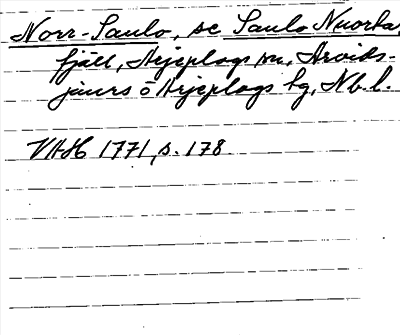 Norr-Saulo, se Saulo Nuorta,
fjäll, Arjeplogs sn, Arvids-
jaurs o Arjeplogs tg, Nb. l.
VAH 1771, s. 178